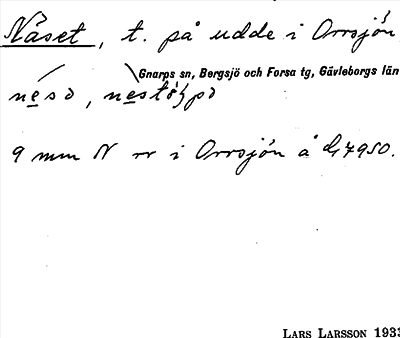 Näset, t. på udde i Orrsjön
Gnarps sn, Bergsjö och Forsa tg, Gävleborgs län
9 mm N rr i Orrsjön å
LARS LARSSON 1933